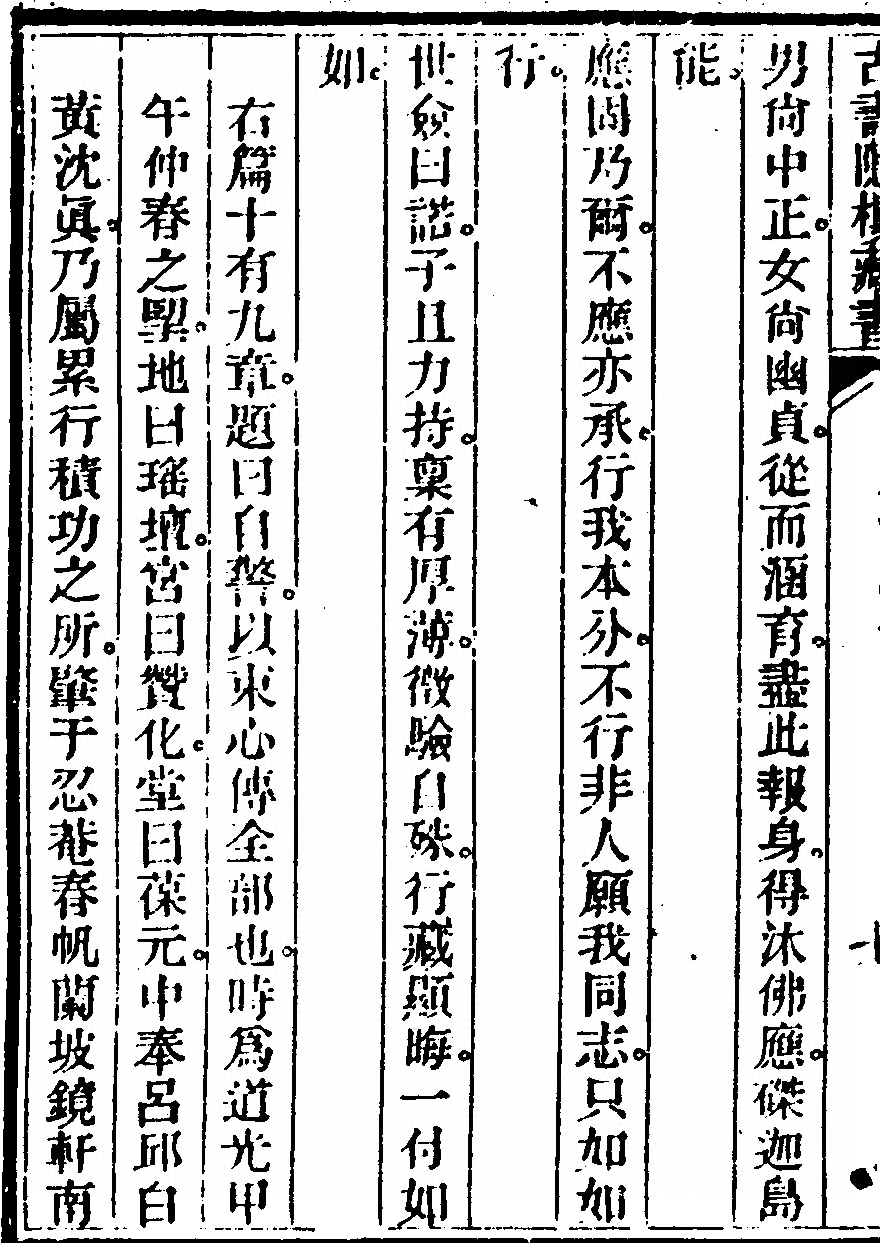 古書隱樓藏書
男尙中正。女尙幽貞。從而涵育。盡此報身。得沐佛應。磔迦島
能。
應固乃爾。不應亦承。行我本分。不行非人願我同志。只如如
行。
世僉曰諾。子且力持。稟有厚薄。徵驗自殊。行藏顯晦。一付如
如。
右篇十有九章。題曰自警。以束心傳全部也。時爲道光甲
午仲春之朢。地曰瑤壇。宮曰贊化。堂曰葆元。中奉呂邱白
黃沈眞。乃屬累行積功之所。肇于忍菴春帆蘭坡鏡軒南